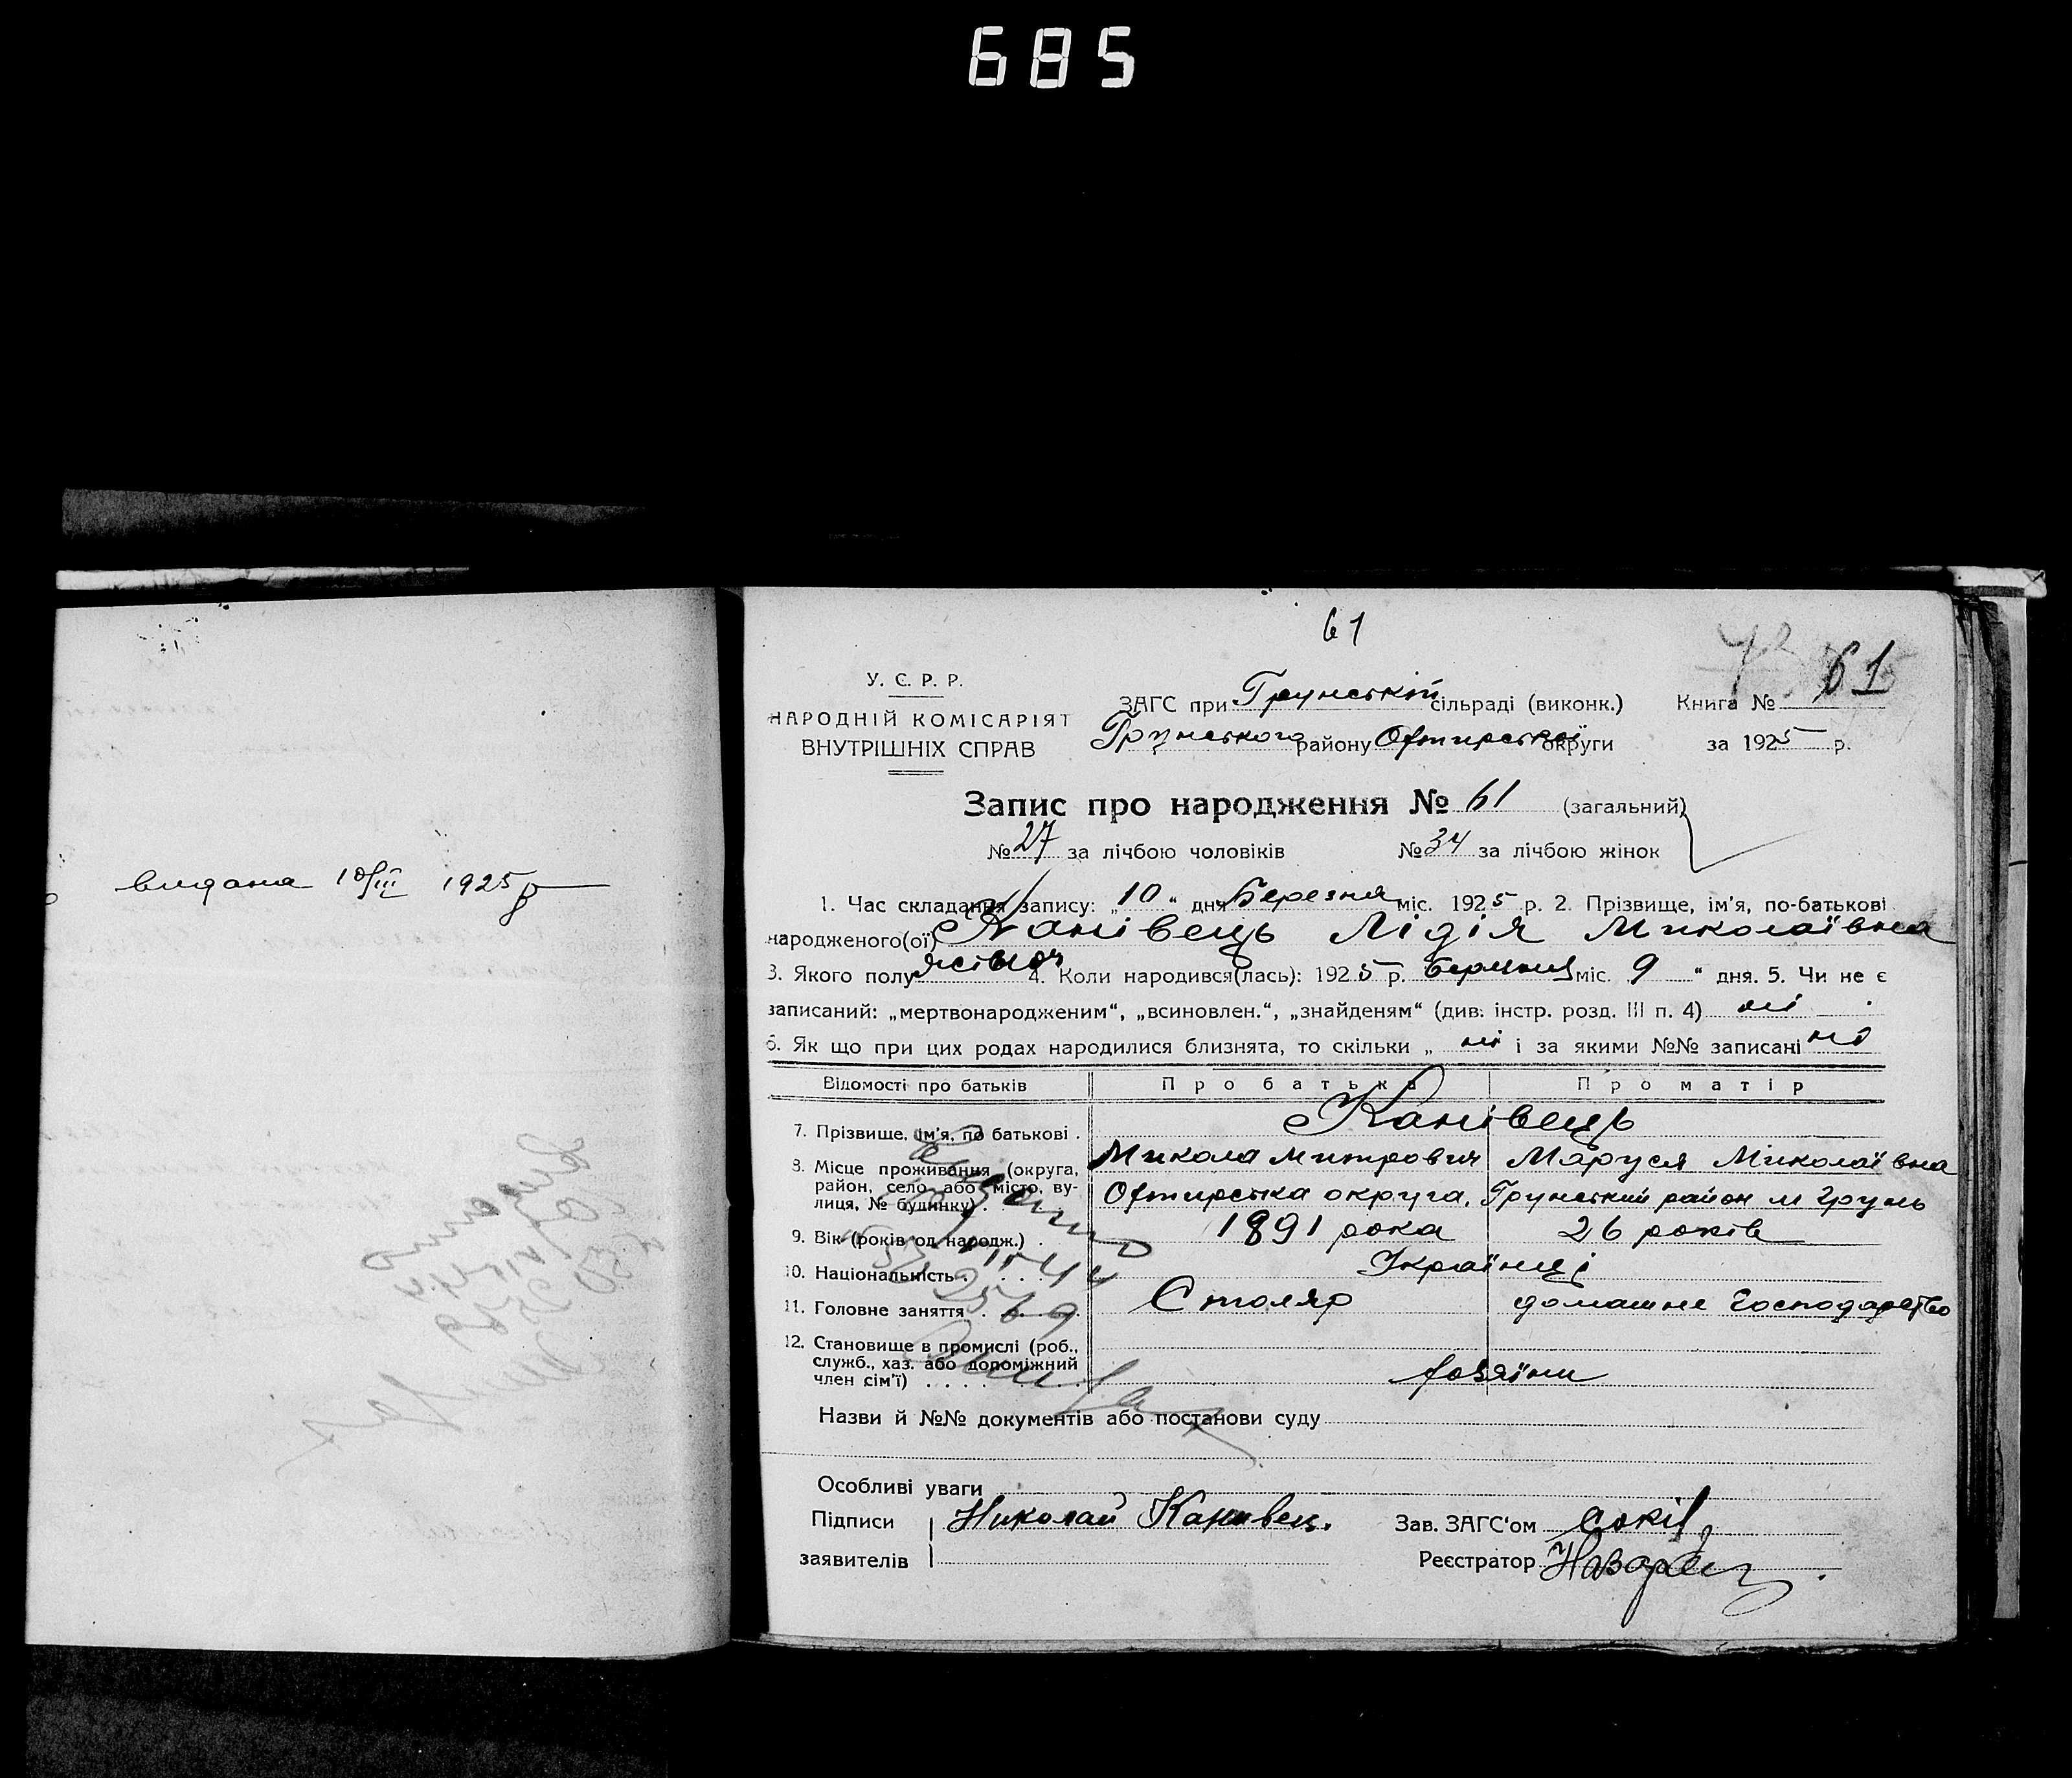 685
видана 10/III 1925 р
61
У. С. Р. Р.
НАРОДНІЙ КОМІСАРІЯТ
ВНУТРІШНІХ СПРАВ
ЗАГС при Грунській сільраді (виконк.)
Грунського району Охтирської округи
Книга № 61
за 1925 р.
Запис про народження № 61 (загальний)
№ 27 за лічбою чоловіків № 34 за лічбою жінок
1. Час складання запису: „10“ дня Березня міс. 1925 р. 2. Прізвище, ім'я, по-батькові
народженого(ої) Канівець Лідія Миколаївна
3. Якого полу жіноч 4. Коли народився(лась): 1925 р. березня міс. 9 “ дня. 5. Чи не є
записаний: „мертвонародженим“, „всиновлен.“, „знайденям“ (див. інстр. розд. III п. 4) ні
6. Як що при цих родах народилися близнята, то скільки „ ні і за якими №№ записані ні
Відомості про батьків Про батька Про матір
7. Прізвище, ім'я, по батькові . Канівець
Микола Митрович Маруся Миколаївна
8. Місце проживання (округа,
район, село або місто, ву-
лиця, № будинку) . Охтирська округа, Грунський район м Грунь
9. Вік (років од народж.) . 1891 рока 26 років
10. Національність . . . . Українці
11. Головне заняття . . . Столяр домашне господарство
12. Становище в промислі (роб.,
служб., хаз. або допоміжний
член сім'ї) . . . . . хазяїни
Назви й №№ документів або постанови суду
Особливі уваги
Підписи Николай Канивец.
заявителів
Зав. ЗАГС‘ом
Реєстратор